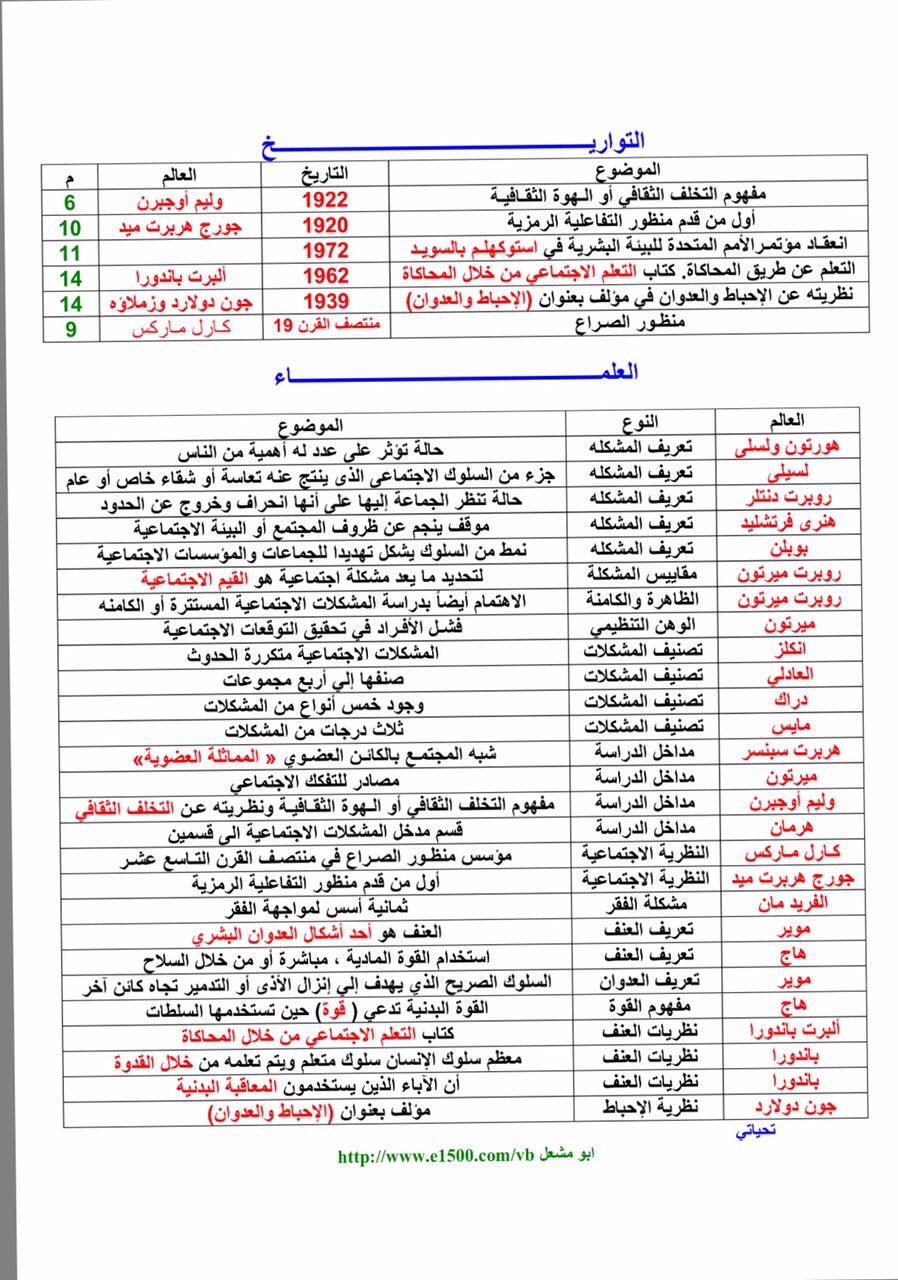 التواريـــــــــــــــــــــخ
الموضوع التاريخ العالم م
مفهوم التخلف الثقافي أو الـهوة الثقـافيـة 1922 وليم أوجبرن 6
أول من قدم منظور التفاعلية الرمزية 1920 جورج هربرت ميد 10
انعقـاد مؤتمـر الأمم المتحدة للبيئة البشرية في استوكهلـم بالسويـد 1972 11
التعلم عن طريق المحاكاة. كتاب التعلم الاجتماعي من خلال المحاكاة 1962 ألبرت باندورا 14
نظريته عن الإحباط والعدوان في مؤلف بعنوان (الإحباط والعدوان) 1939 جون دولارد وزملاؤه 14
منظـور الصـراع منتصف القرن 19 كـارل مـاركس 9
العلمـــــــــــــــــــــاء
العالم النوع الموضوع
هورتون ولسلي تعريف المشكله حالة تؤثر علي عدد له أهمية من الناس
لسيلي تعريف المشكله جزء من السلوك الاجتماعي الذى ينتج عنه تعاسة أو شقاء خاص أو عام
روبرت دنتلر تعريف المشكله حالة تنظر الجماعة إليها علي أنها انحراف وخروج عن الحدود
هنرى فرتشليد تعريف المشكله موقف ينجم عن ظروف المجتمع أو البيئة الاجتماعية
بوبلن تعريف المشكله نمط من السلوك يشكل تهديدا للجماعات والمؤسسات الاجتماعية
روبرت ميرتون مقاييس المشكلة لتحديد ما يعد مشكلة اجتماعية هو القيم الاجتماعية
روبرت ميرتون الظاهرة والكامنة الاهتمام أيضاً بدراسة المشكلات الاجتماعية المستترة أو الكامنه
ميرتون الوهن التنظيمي فشـل الأفـراد في تحقيق التوقعات الاجتماعية
انكلز تصنيف المشكلات المشكلات الاجتماعية متكررة الحدوث
العادلي تصنيف المشكلات صنفها إلي أربع مجموعات
دراك تصنيف المشكلات وجود خمس أنواع من المشكلات
مايس تصنيف المشكلات ثلاث درجات من المشكلات
هربرت سبنسر مداخل الدراسة شبه المجتمـع بالكائـن العضـوي « المماثلة العضوية»
ميرتون مداخل الدراسة مصادر للتفكك الاجتماعي
وليم أوجبرن مداخل الدراسة مفهوم التخلف الثقافي أو الـهوة الثقـافيـة ونظـريته عـن التخلف الثقافي
هرمان مداخل الدراسة قسم مدخل المشكلات الاجتماعية الى قسمين
كـارل مـاركس النظرية الاجتماعية مؤسس منظـور الصـراع في منتصـف القرن التـاسع عشـر
جورج هربرت ميد النظرية الاجتماعية أول من قدم منظور التفاعلية الرمزية
الفريد مان مشكلة الفقر ثمانية أسس لمواجهة الفقر
موير تعريف العنف العنف هو أحد أشكال العدوان البشري
هاج تعريف العنف استخدام القوة المادية ، مباشرة أو من خلال السلاح
موير تعريف العدوان السلوك الصريح الذي يهدف إلي إنزال الأذى أو التدمير تجاه كائن آخر
هاج مفهوم القوة القوة البدنية تدعي ( قوة) حين تستخدمها السلطات
ألبرت باندورا نظريات العنف كتاب التعلم الاجتماعي من خلال المحاكاة
باندورا نظريات العنف معظم سلوك الإنسان سلوك متعلم ويتم تعلمه من خلال القدوة
باندورا نظريات العنف أن الآباء الذين يستخدمون المعاقبة البدنية
جون دولارد نظرية الإحباط مؤلف بعنوان (الإحباط والعدوان)
تحياتي
ابو مشعل http://www.e1500.com/vb